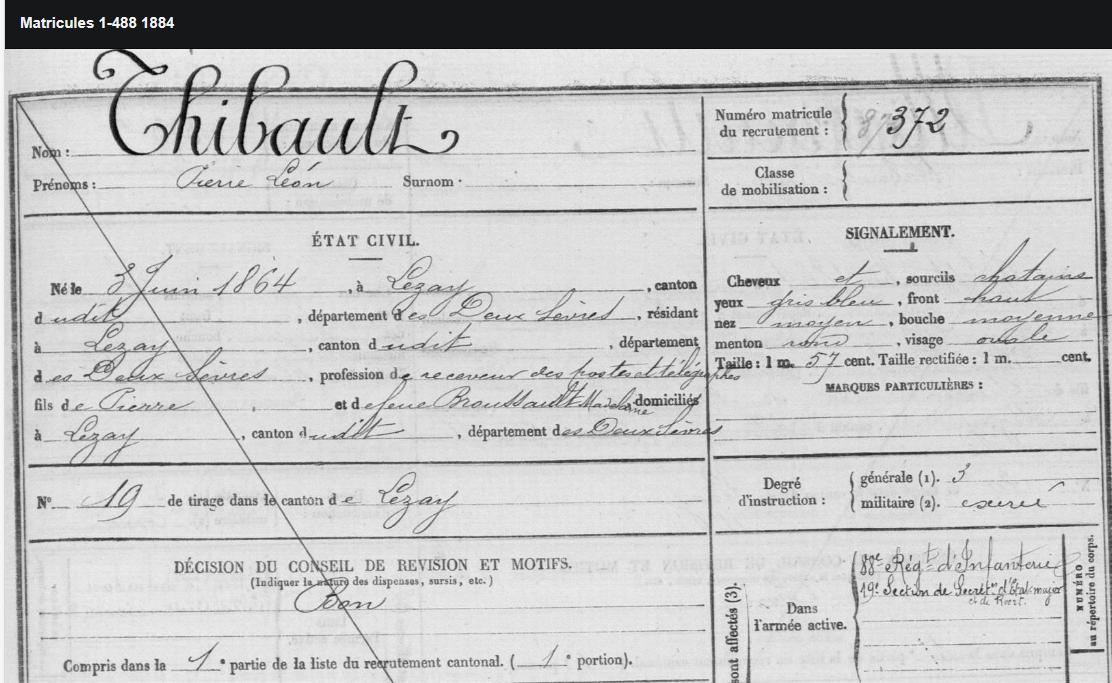 Matricules 1-488 1884
Nom : Thibault
Prénoms : Pierre Léon Surnom ·
ÉTAT CIVIL.
Né le 3 Juin 1864 , à Lezay , canton
d udit , département des Deux Sèvres , résidant
à Lezay , canton dudit , département
des Deux Sèvres , profession de receveur des postes et télégraphes
fils de Pierre , et de feue Broussault Madeleine domiciliés
à Lezay , canton dudit , département des Deux Sèvres
N° 19 de tirage dans le canton de Lezay
DÉCISION DU CONSEIL DE REVISION ET MOTIFS.
(Indiquer la nature des dispenses, sursis, etc.)
Bon
Compris dans la 1e partie de la liste du recrutement cantonal. ( 1e portion).
Numéro matricule
du recrutement : 372
Classe
de mobilisation :
SIGNALEMENT.
Cheveux et , sourcils chatains
yeux gris bleu , front haut
nez moyen , bouche moyenne
menton rond , visage ovale
Taille : 1 m. 57 cent. Taille rectifiée : 1 m. cent.
MARQUES PARTICULIÈRES :
Degré
d'instruction :
générale (1). 3
militaire (2). exercé
sont affectés (3):
Dans
l'armée active.
88me Régt d'Infanterie
19e Section de Secrétres d'État-major
et de Recrt.
NUMÉRO
au répertoire du corps.